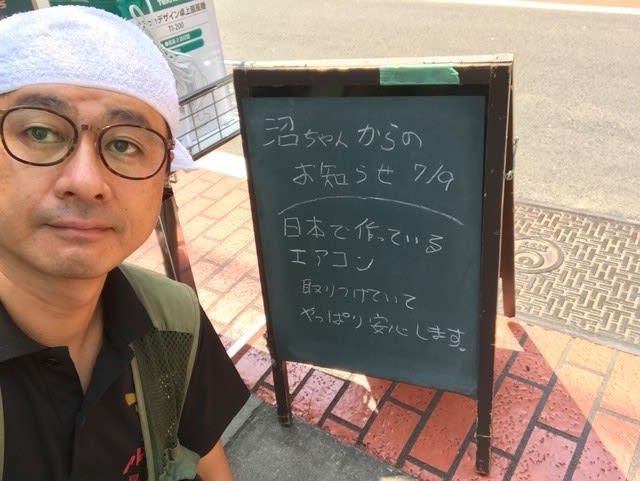 デザイン卓上扇風機
TI-200
沼ちゃんからの
お知らせ 7/9
日本で作っている
エアコン
取りつけていて
やっぱり安心します。